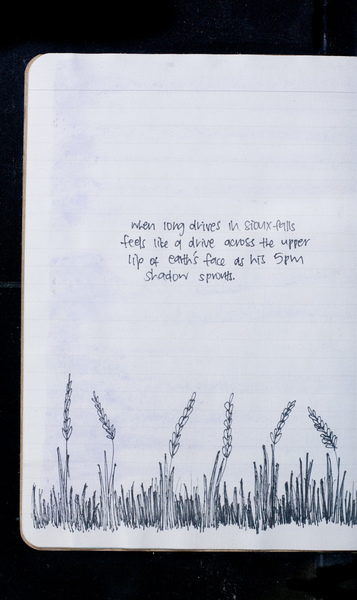 when long drives in sioux falls
feels like a drive across the upper
lip of earth's face as his 5pm
shadow sprouts.